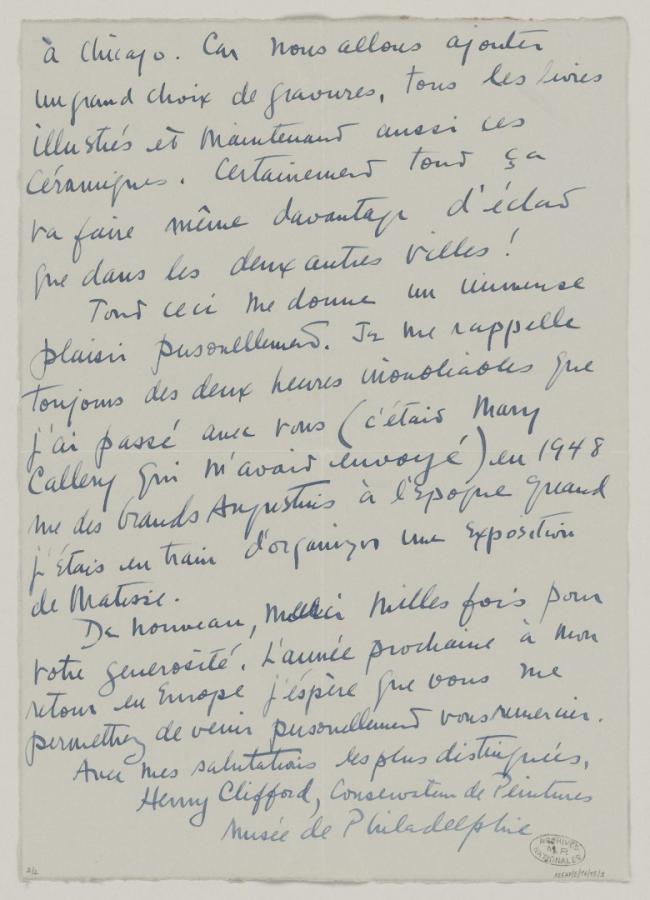 à Chicago. Car nous allons ajouter
un grand choix de gravures, tous les livres
illustrés et maintenant aussi les
Céramiques. Certainement tout ça
va faire même davantage d'éclat
que dans les deux autres villes!
Tout ceci me donne un immense
plaisir personellement. Je me rappelle
toujours des deux heures inoubliables que
j'ai passé avec vous (c'était Mary
Callery qui m'avait envoyé) en 1948
rue des Grands Augustins à l'Epoque quand
j'étais en train d'organiser une Exposition
de Matisse.
De nouveau, merci milles fois pour
votre generosité. L'année prochaine à mon
retour en Europe j'éspère que vous me
permettrez de venir personellement vous remercier.
Avec mes salutations les plus distinguées,
Henry Clifford, Conservateur de Peintures
Musée de Philadelphie
ARCHIVES
M.P.
NATIONALES
2/2